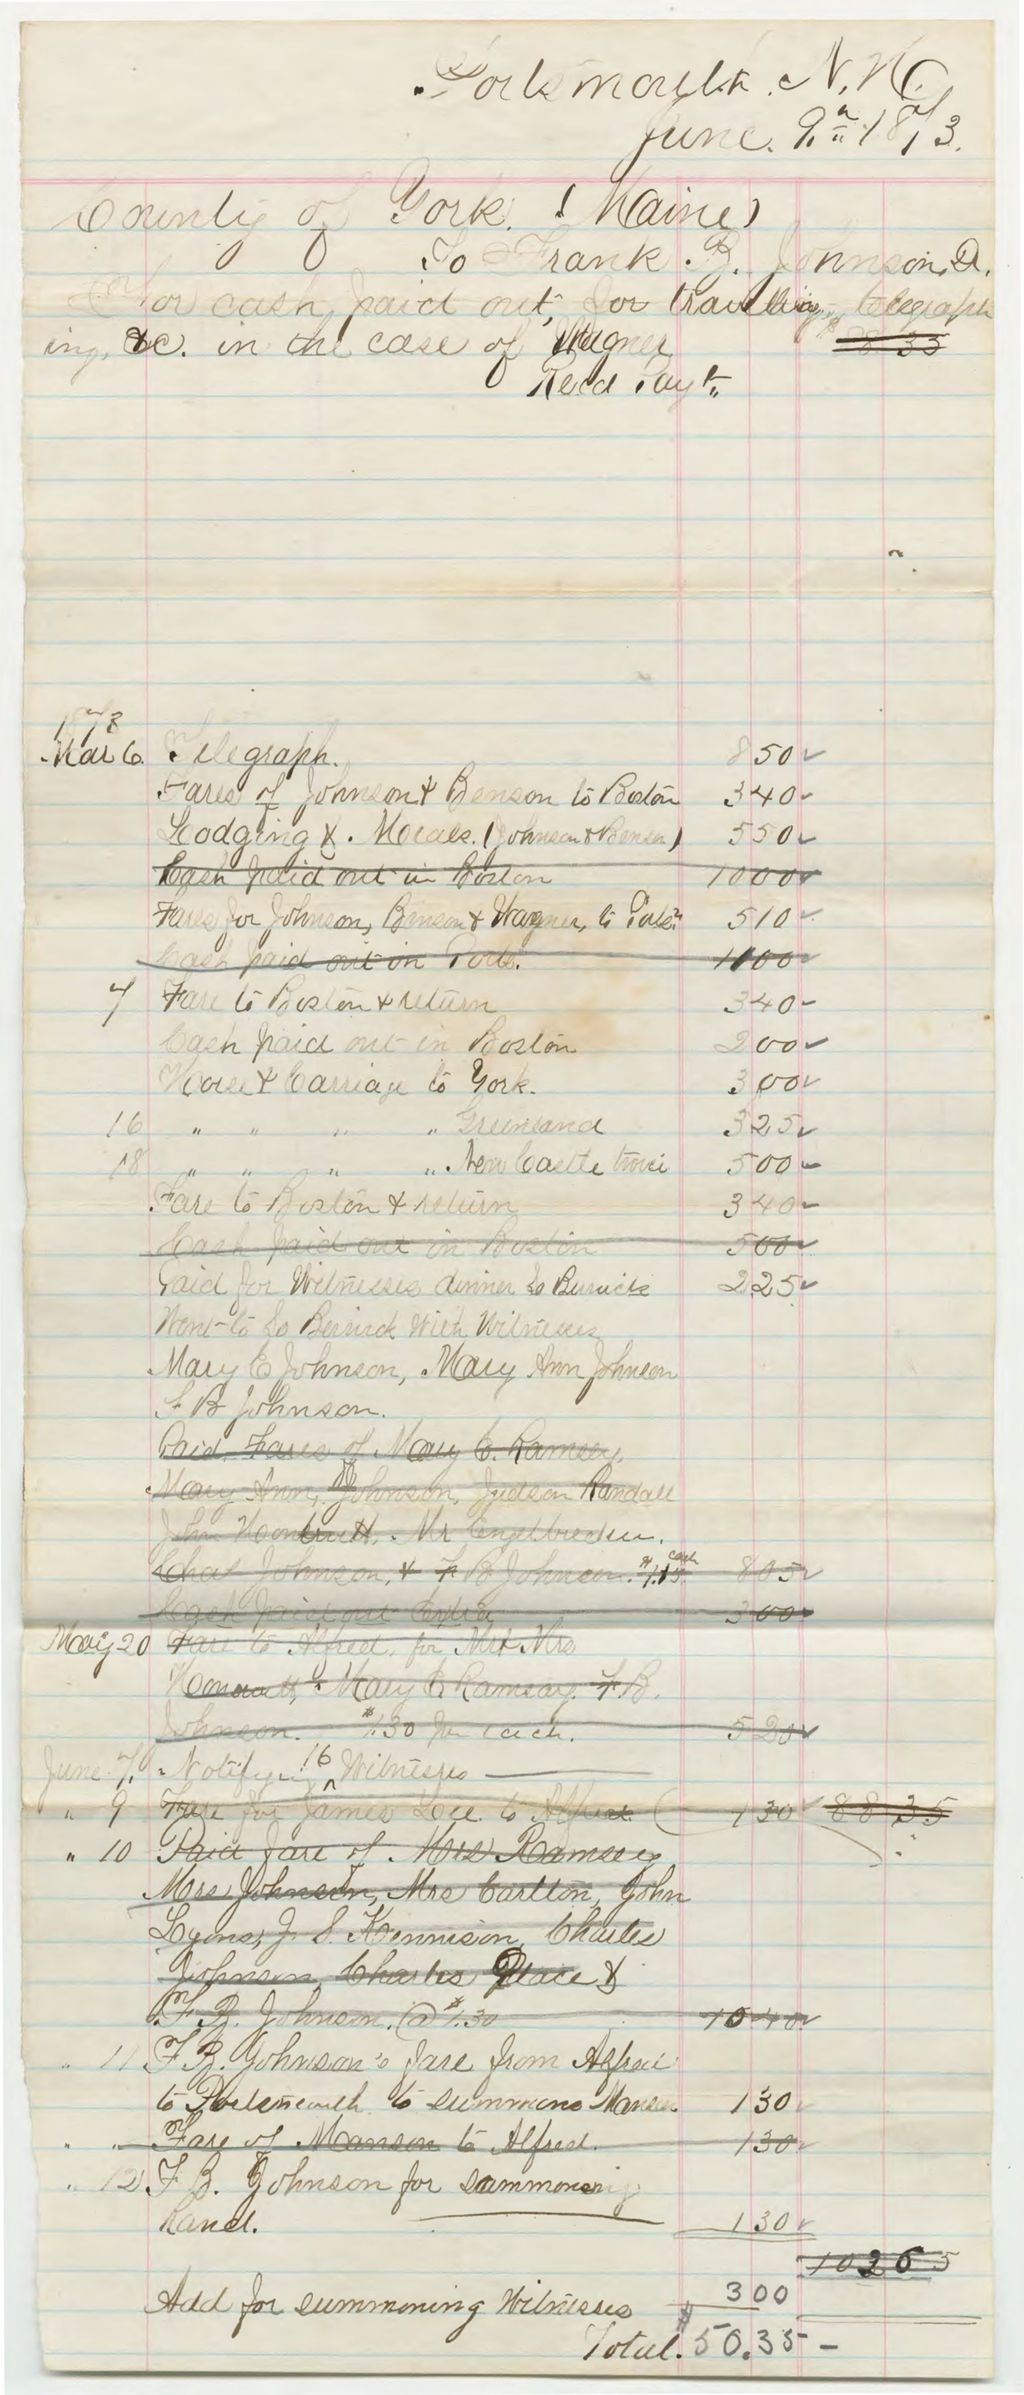 Portsmouth. N.H.
June. 9.th 1873.
County of York. (Maine)
To Frank B. Johnson, Dr.
For cash paid out, for travelling, telegraph
ing, &c. in the case of Wagner 88 35
Recd Payt.
1873
Mar 6. Telegraph. 8 50
Fares of Johnson & Benson to Boston 3 40
Lodging & Meals. (Johnson & Benson) 5 50
Cash paid out in Boston 10 00
Fares for Johnson, Benson & Wagner, to Ports. 5 10
Cash paid out in Ports. 11 00
7 Fare to Boston & return 3 40
Cash paid out in Boston 2 00
Horse & Carriage to York. 3 00
16 " " " " Greenland 3 25
18 " " " " New Castle twice 5 00
Fare to Boston & return 3 40
Cash paid out in Boston 5 00
Paid for Witnesses dinner So Berwick 2 25
Went to So Berwick With Witnesses
Mary E Johnson, Mary Ann Johnson
F B Johnson.
Paid Fares of Mary C. Ramsey,
Mary Ann, Johnson, Judson Randall
John Mr
Chas Johnson, & F B Johnson. $1.15 each 8 05
Cash paid out Extra 3 00
May 20 Fare to Alfred, for Mr & Mrs
& Mary C. Ramsay. F. B.
Johnson. $1.30 for each. 5 20
June 7. Notifying 16 Witnesses
" 9 Fare for James Lee to Alfred 1 30 88 35
" 10 Paid fare of Mrs Ramsey
Mrs Johnson, Mrs Carlton, John
Lyons, J. S. Kennison, Charles
Johnson, Charles Place &
F. B. Johnson. @ $1.30 10 40
" 11 F. B. Johnson's fare from Alfred
to Portsmouth to summons Manson 1 30
" " Fare of Manson to Alfred. 1 30
" 12 F. B. Johnson for summoning
Rand. 1 30
102 65
Add for summoning Witnesses 3 00
Total. $50.35 -